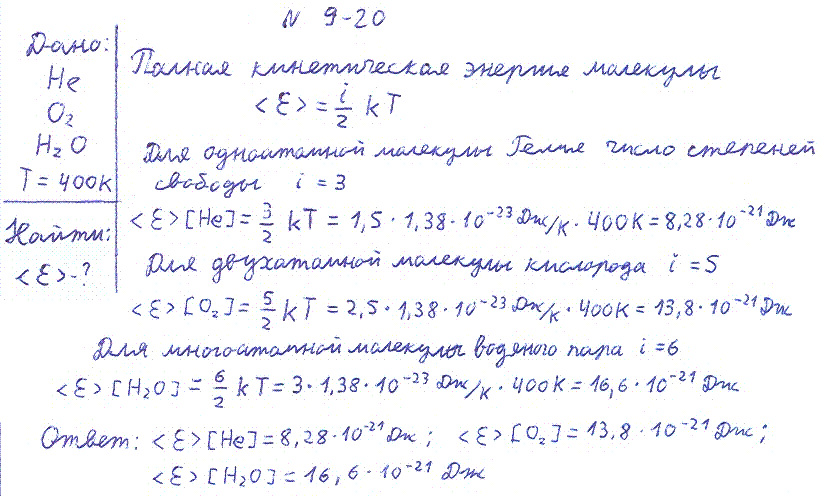 N 9-20
Дано:
He
O₂
H₂O
T = 400K
Найти:
<ε>-?
Полная кинетическая энергия молекулы
<ε> = i/2 kT
Для одноатомной молекулы Гелия число степеней
свободы i = 3
<ε>[He] = 3/2 kT = 1,5 · 1,38 · 10⁻²³ Дж/К · 400К = 8,28 · 10⁻²¹ Дж
Для двухатомной молекулы кислорода i = 5
<ε>[O₂] = 5/2 kT = 2,5 · 1,38 · 10⁻²³ Дж/К · 400К = 13,8 · 10⁻²¹ Дж
Для многоатомной молекулы водяного пара i = 6
<ε>[H₂O] = 6/2 kT = 3 · 1,38 · 10⁻²³ Дж/К · 400К = 16,6 · 10⁻²¹ Дж
Ответ: <ε>[He] = 8,28 · 10⁻²¹ Дж; <ε>[O₂] = 13,8 · 10⁻²¹ Дж;
<ε>[H₂O] = 16,6 · 10⁻²¹ Дж